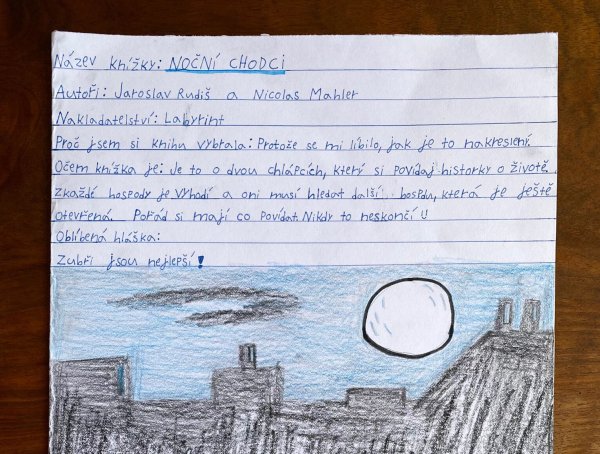 Název knížky: NOČNÍ CHODCI
Autoři: Jaroslav Rudiš a Nicolas Mahler
Nakladatelství: Labyrint
Proč jsem si knihu vybrala: Protože se mi líbilo, jak je to nakreslení.
Očem knížka je: Je to o dvou chlápcích, který si povídaj historky o životě.
Zkaždé hospody je vyhodí a oni musí hledat další hospodu, která je ještě
otevřená. Pořád si mají co povídat. Nikdy to neskončí!!
Oblíbená hláška:
Zubři jsou nejlepší!